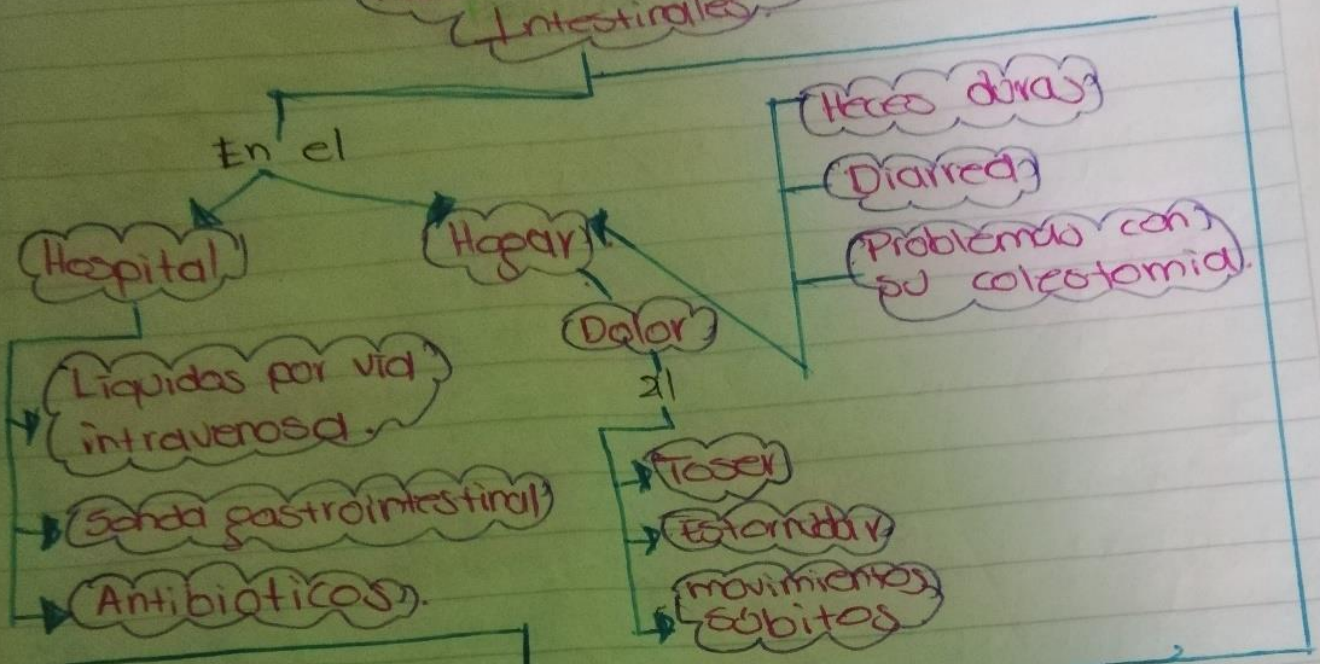 Intestinales.
En el
Hospital
Líquidos por vía
intravenosa.
Sonda gastrointestinal
Antibioticos.
Hogar
Dolor
al
Toser
Estornudar
movimientos
súbitos
Heces duras
Diarrea
Problemas con
su coleotomia.